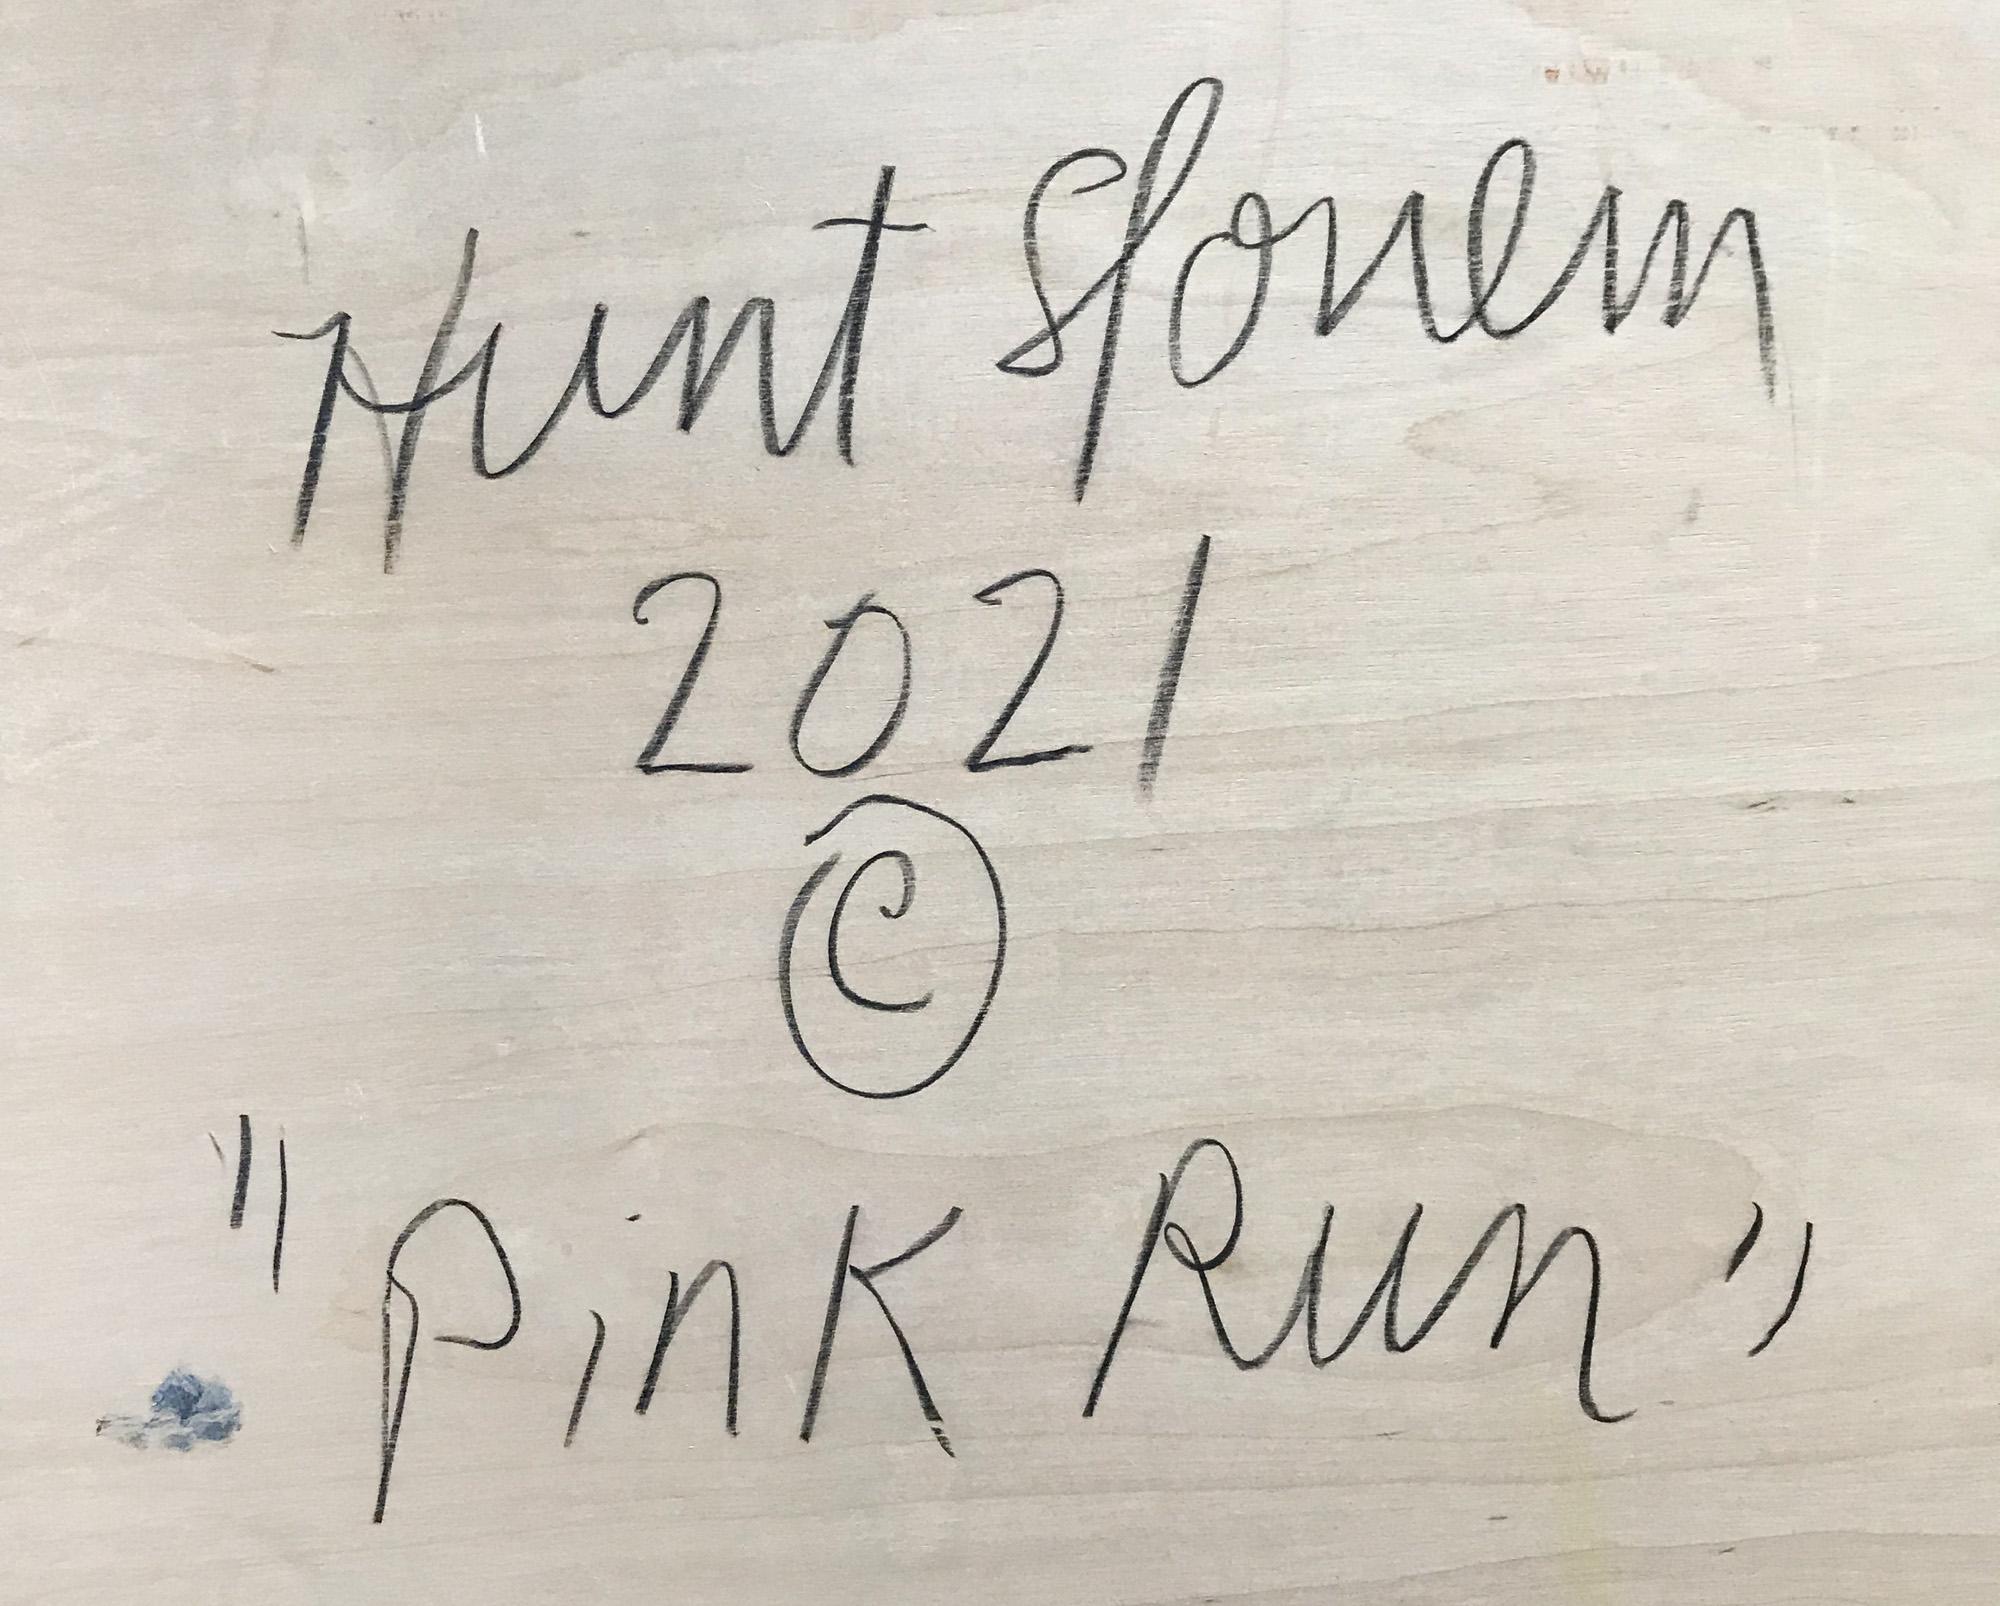 Hunt Slonem
2021
©
"Pink Run"